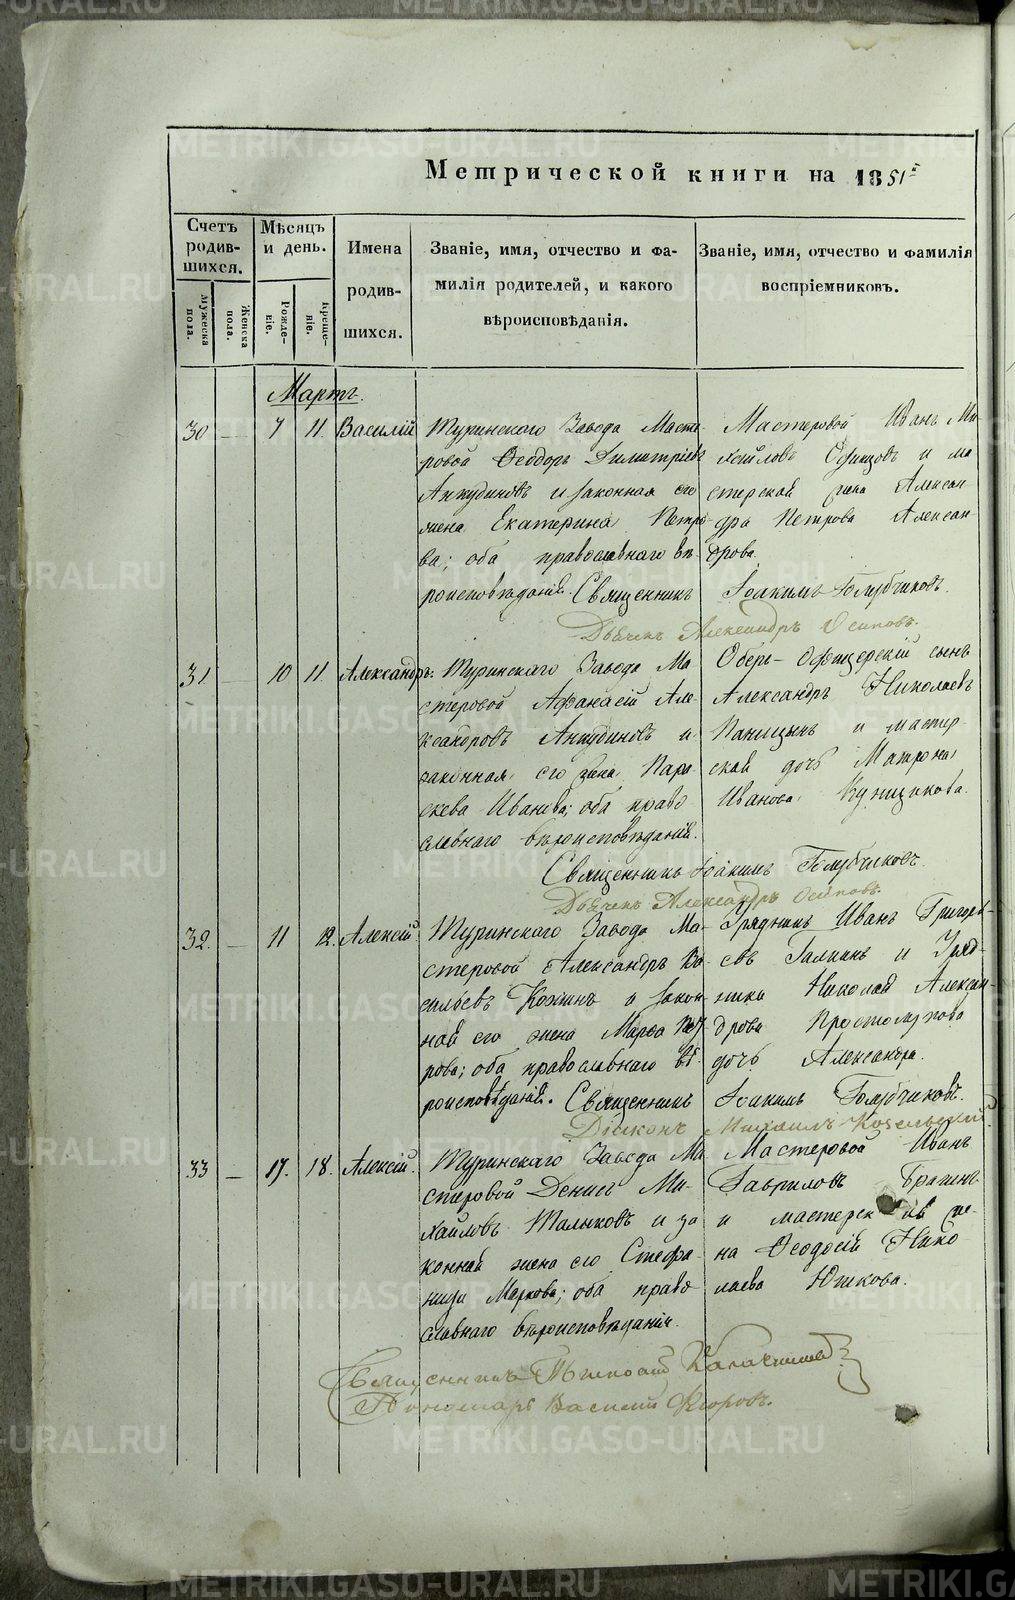 Метрической книги на 1851й
Счетъ родив-шихся.
Мужеска пола.
Женска пола.
Мѣсяцъ и день.
Рожде-ніе.
Креще-ніе.
Имена родив-шихся.
Званіе, имя, отчество и фа-
милія родителей, и какого
вѣроисповѣданія.
Званіе, имя, отчество и фамилія
воспріемниковъ.
Мартъ.
30 — 7 11 Василій
Туринскаго Завода Масте-
ровой Ѳеодоръ Димитріевъ
Анкудиновъ и законная его
жена Екатерина Петро-
ва; оба православнаго вѣ-
роисповѣданія.
Мастеровой Иванъ Ми-
хайловъ и ма
стерской жена Алексан-
дра Петрова Алексан-
дрова.
Священникъ Іоакимъ Голубчиковъ.
Дьячекъ Александръ Осиповъ.
31 — 10 11 Александръ.
Туринскаго Завода Ма
стеровой Афанасій Але-
ксандровъ Анкудиновъ и
законная его жена Пара-
скева Иванова; оба право
славнаго вѣроисповѣданія.
Оберъ-Офицерскій сынъ
Александръ Николаевъ
и мастер-
ская дочь Матрона
Иванова Кунщикова.
Священникъ Іоакимъ Голубчиковъ.
Дьячекъ Александръ Осиповъ.
32. — 11 12. Алексій
Туринскаго Завода Ма-
стеровой Александръ Ва-
сильевъ и закон-
ная его жена Марѳа Пет-
рова; оба православнаго вѣ-
роисповѣданія.
Урядникъ Иванъ Григорь-
евъ Галкинъ и Уряд-
ника Николая Алексан-
дрова Простолупова
дочь Александра.
Священникъ Іоакимъ Голубчиковъ.
Діаконъ Михаилъ Козельскій.
33 — 17. 18. Алексій.
Туринскаго Завода Ма
стеровой Денисъ Ми-
хайловъ Талыковъ и за
конная жена его Стефа-
нида Маркова; оба право
славнаго вѣроисповѣданія.
Мастеровой Иванъ
Гавриловъ
и мастерск ая же-
на Ѳеодосія Нико
лаева Юшкова.
Священникъ Тимоѳей
Пономарь Василій Флоровъ.
METRIKI.GASO-URAL.RU